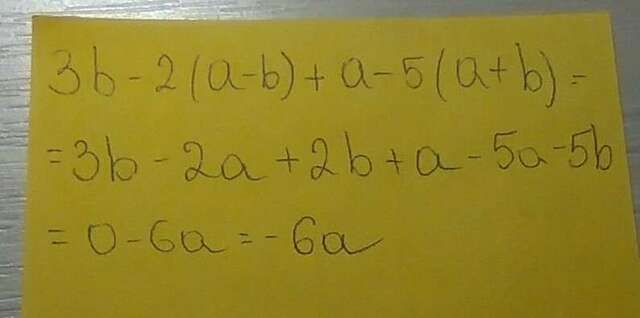 3b - 2(a-b) + a - 5(a+b) =
= 3b - 2a + 2b + a - 5a - 5b
= 0 - 6a = - 6a